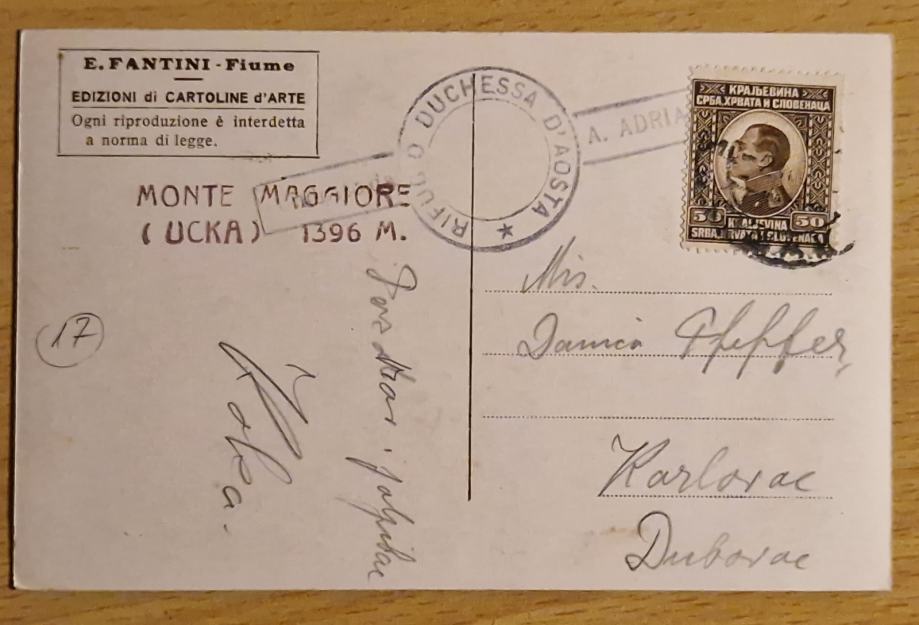 E. FANTINI - Fiume
EDIZIONI di CARTOLINE d'ARTE
Ogni riproduzione è interdetta
a norma di legge.
RIFUGIO DUCHESSA D'AOSTA
A. ADRIA
MONTE MAGGIORE
(UCKA) 1396 M.
КРАЉЕВИНА
СРБА, ХРВАТА И СЛОВЕНАЦА
50 50
KRALJEVINA
SRBA, HRVATA I SLOVENACA
17
Pozdrav i
Koka.
Mis.
Danica Pfeffer,
Karlovac
Dubovac